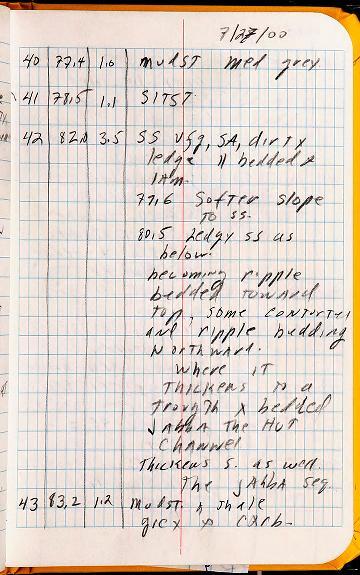 7/27/00
40 77.4 1.0 mudST med grey
41 78.5 1.1 SITST
42 82.0 3.5 SS vfg, SA, dirty
ledge // bedded &
lam.
77.6 Softer slope
to ss.
80.5 Ledgy ss as
below.
becoming ripple
bedded toward
top, some contorted
and ripple bedding
Northward.
where it
Thickens to a
trough x bedded
JABBA THE HUT
Channel
Thickens S. as well.
The JAbbA seq.
43 83.2 1.2 mudst. & shale
grey & carb-